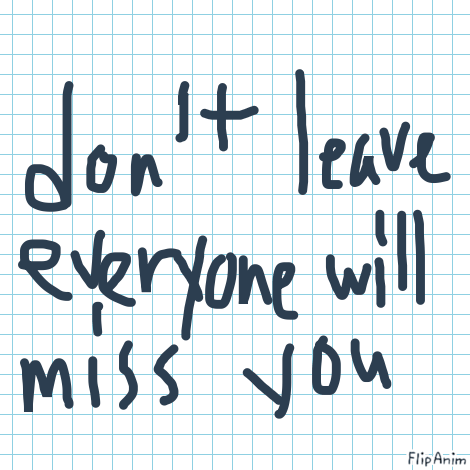 don't leave
everyone will
miss you
FlipAnim